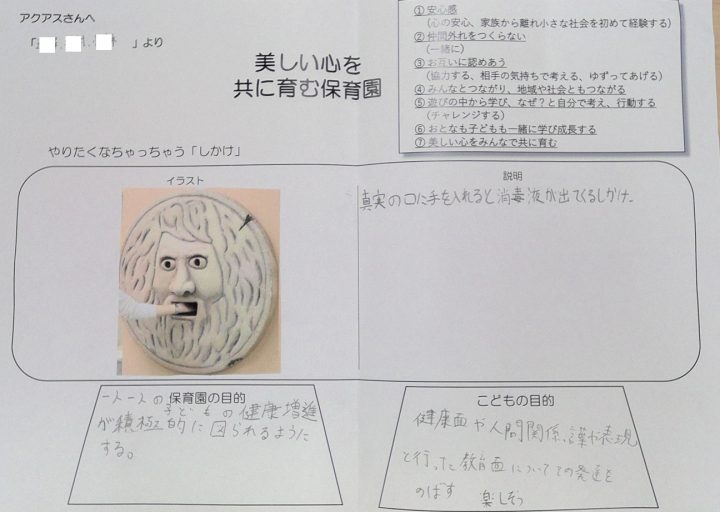 アクアスさんへ
「 」より
美しい心を
共に育む保育園
① 安心感
(心の安心、家族から離れ小さな社会を初めて経験する)
② 仲間外れをつくらない
(一緒に)
③ お互いに認めあう
(協力する、相手の気持ちで考える、ゆずってあげる)
④ みんなとつながり、地域や社会ともつながる
⑤ 遊びの中から学び、なぜ?と自分で考え、行動する
(チャレンジする)
⑥ おとなも子どもも一緒に学び成長する
⑦ 美しい心をみんなで共に育む
やりたくなちゃっちゃう「しかけ」
イラスト
説明
真実の口に手を入れると消毒液が出てくるしかけ。
保育園の目的
一人一人の
子どもの健康増進
が積極的に図られるように
する。
こどもの目的
健康面や人間関係、言葉や表現
と行った教育面についての発達を
のばす 楽しそう